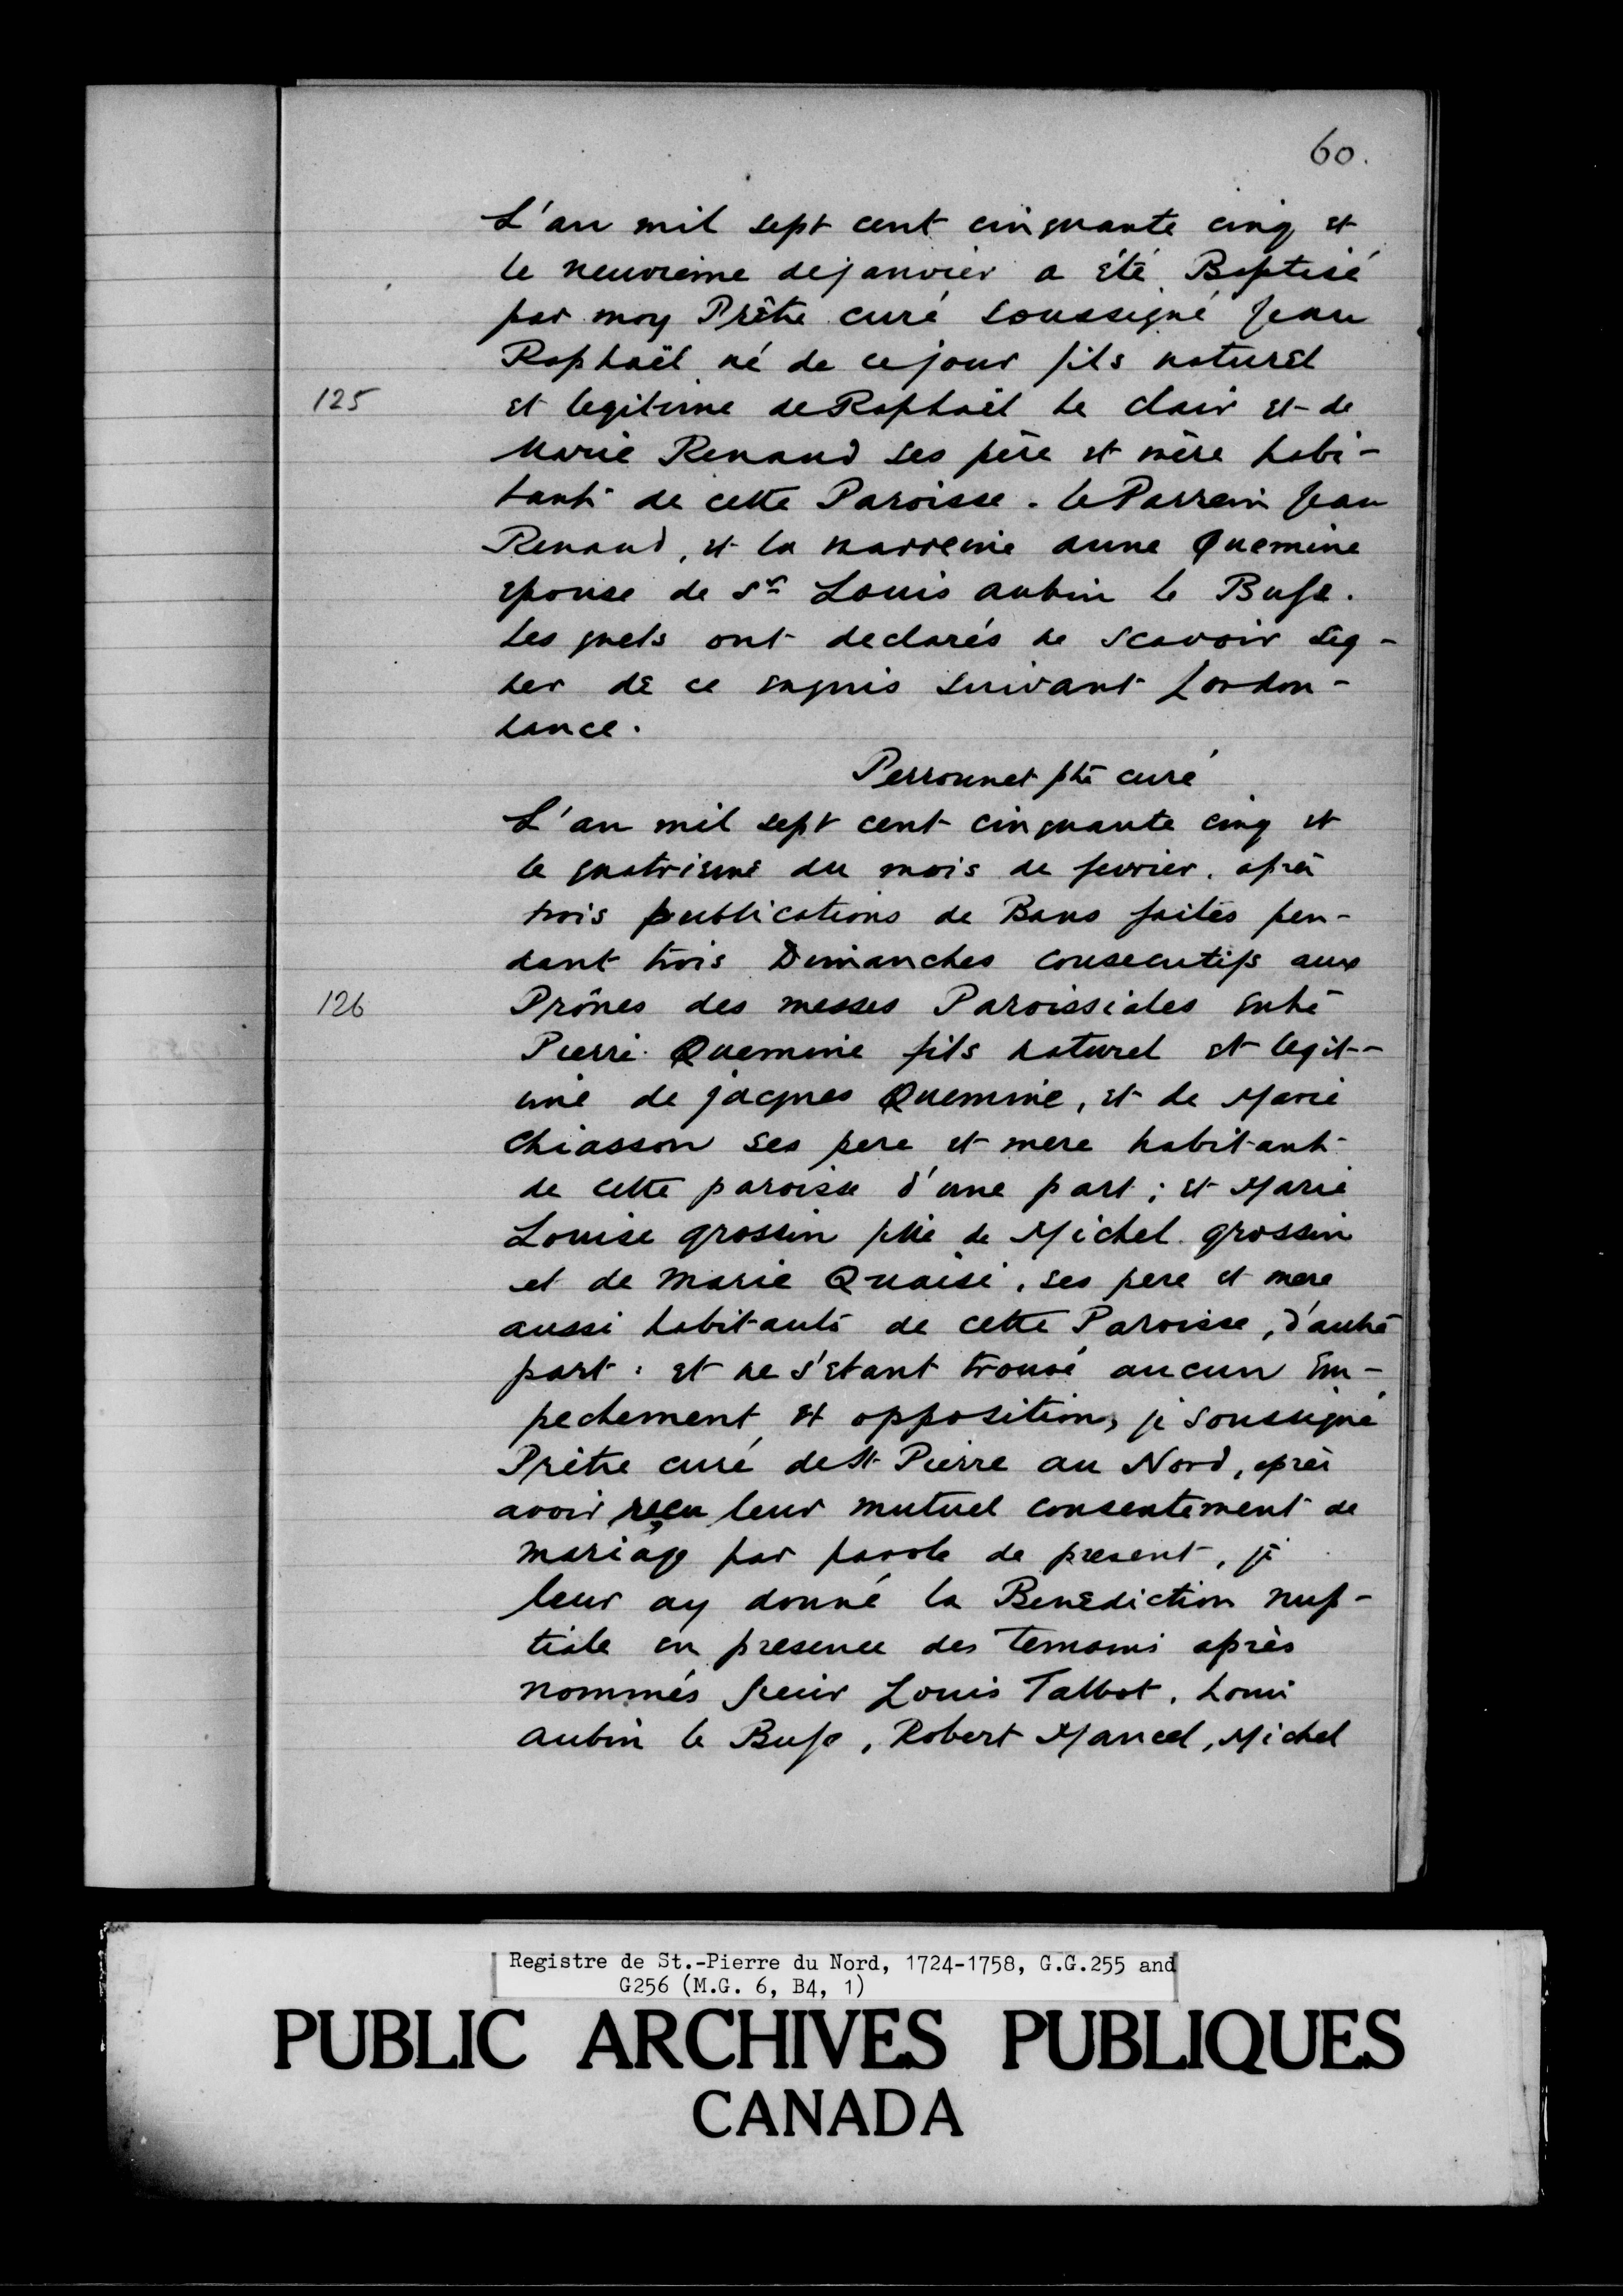 60.
L'an mil sept cent cinquante cinq et
le neuvieme de janvier a été Baptisé
par moy Prêtre curé soussigné Jean
Raphaël né de ce jour fils naturel
125
et legitime de Raphaël le clair et de
Marie Renaud ses père et mère habi-
tants de cette Paroisse. le Parrein Jean
Renaud, et la marreine anne Quemine
epouse de Sr Louis aubin le Buffe.
les quels ont declarés ne scavoir sig-
ner de ce enquis suivant lordon-
nance.
Perronnet ptre curé
L'an mil sept cent cinquante cinq et
le quatrieme du mois de fevrier, après
trois publications de Bans faites pen-
dant trois Dimanches consecutifs aux
126
Prônes des messes Paroissiales entre
Pierre Quemine fils naturel et legit-
ime de jacques Quemine, et de Marie
Chiasson ses pere et mere habitants
de cette paroisse d'une part; et Marie
Louise grossin fille de Michel grossin
et de marie Quaisi, ses pere et mere
aussi habitants de cette Paroisse, d'autre
part: et ne s'etant trouvé aucun em-
pechement et opposition, je soussigné
Prètre curé de St Pierre au Nord, après
avoir reçu leur mutuel consentement de
mariage par parole de present, je
leur ay donné la Benediction nup-
tiale en presence des temoins après
nommés sieur Louis Talbot, Louis
aubin le Buffe, Robert Mancel, Michel
Registre de St.-Pierre du Nord, 1724-1758, G.G.255 and
G256 (M.G. 6, B4, 1)
PUBLIC ARCHIVES PUBLIQUES
CANADA